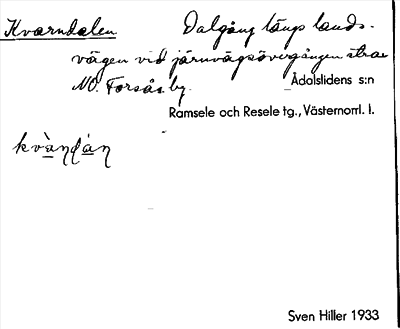 Kvarndalen Dalgång längs lands-
vägen vid järnvägsövergången strax
NO. Forsås by.
Ådalslidens s:n
Ramsele och Resele tg., Västernorrl. l.
Sven Hiller 1933